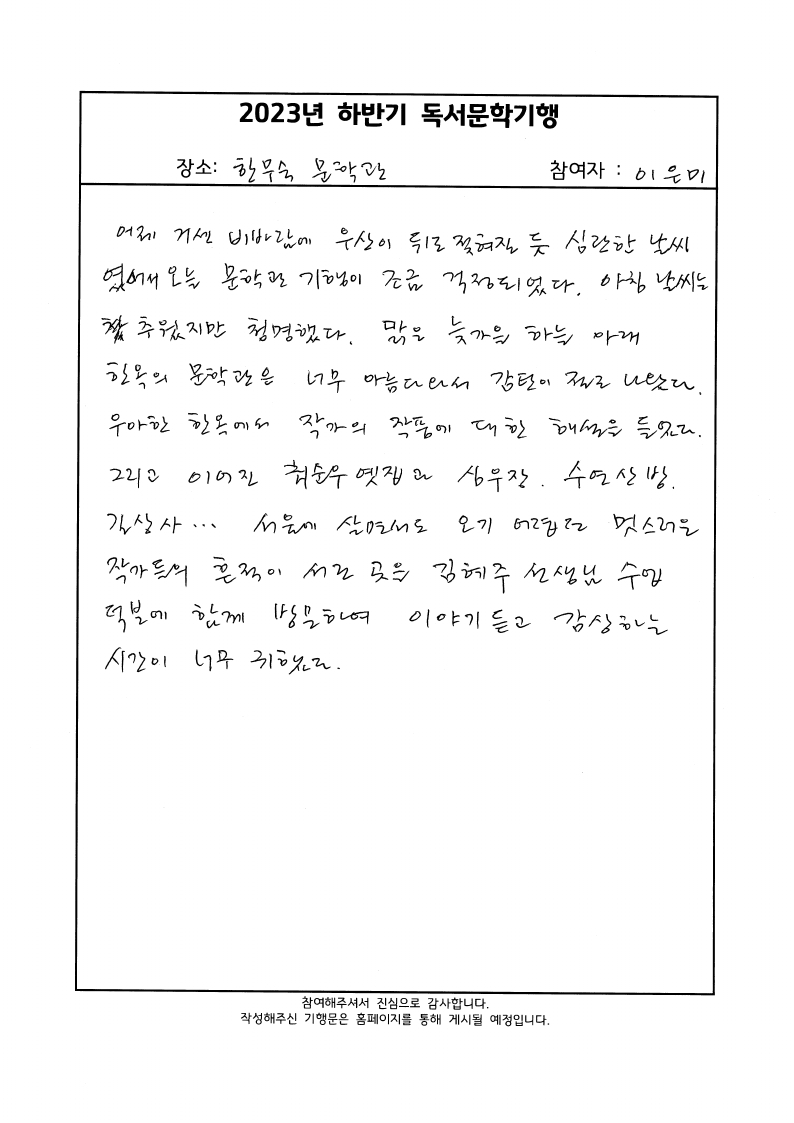 2023년 하반기 독서문학기행
장소: 한무숙 문학관 참여자 : 이은미
어제 거센 비바람에 우산이 뒤로 젖혀질 듯 심란한 날씨
였어서 오늘 문학관 기행이 조금 걱정되었다. 아침 날씨는
추웠지만 청명했다. 맑은 늦가을 하늘 아래
한옥의 문학관은 너무 아름다워서 감탄이 절로 나왔다.
우아한 한옥에서 작가의 작품에 대한 해설을 들었다.
그리고 이어진 최순우 옛집과 심우장. 수연산방.
길상사... 서울에 살면서도 오기 어렵던 멋스러운
작가들의 흔적이 서린 곳을 김혜주 선생님 수업
덕분에 함께 방문하여 이야기 듣고 감상하는
시간이 너무 귀했다.
참여해주셔서 진심으로 감사합니다.
작성해주신 기행문은 홈페이지를 통해 게시될 예정입니다.